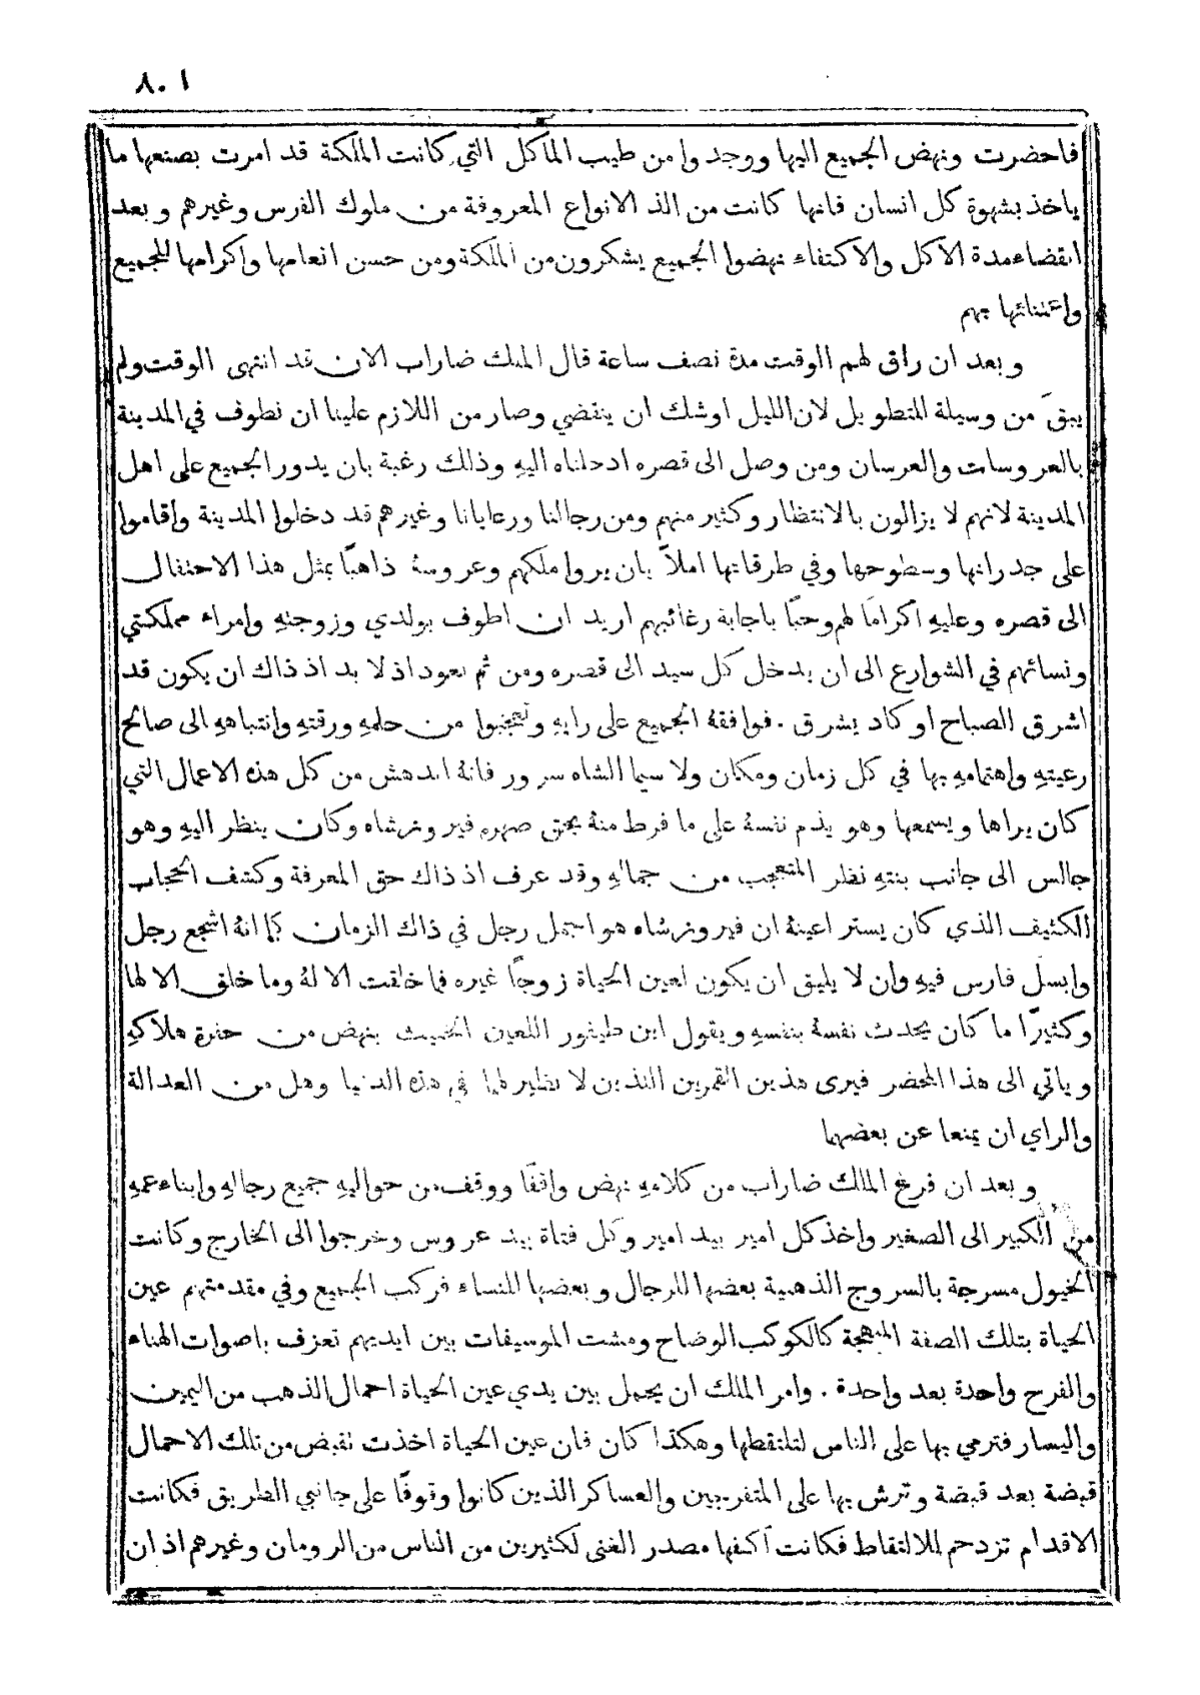 ٨٠١
فاحضرت ونهض الجميع اليها ووجدوا من طيب المآكل التي كانت الملكة قد امرت بصنعها ما
ياخذ بشهوة كل انسان فانها كانت من الذ الانواع المعروفة من ملوك الفرس وغيرهم وبعد
انقضاء مدة الاكل والاكتفاء نهضوا الجميع يشكرون من الملكة ومن حسن انعامها واكرامها للجميع
واعتنائها بهم
وبعد ان راق لهم الوقت مدة نصف ساعة قال الملك ضاراب الان قد انتهى الوقت ولم
يبقَ من وسيلة للتطويل لان الليل اوشك ان ينقضي وصار من اللازم علينا ان نطوف في المدينة
بالعروسات والعرسان ومن وصل الى قصره ادخلناه اليهِ وذلك رغبة بان يدور الجميع على اهل
المدينة لانهم لا يزالون بالانتظار وكثير منهم ومن رجالنا ورعايانا وغيرهم قد دخلوا المدينة واقاموا
على جدرانها وسطوحها وفي طرقاتها املاً بان يروا ملكهم وعروسهُ ذاهبًا بمثل هذا الاحتفال
الى قصره وعليهِ اكرامًا لهم وحبًا باجابة رغائبهم اريد ان اطوف بولدي وزوجتهِ وامراء مملكتي
ونسائهم في الشوارع الى ان يدخل كل سيد الى قصره ومن ثم نعود اذ لا بد اذ ذاك ان يكون قد
اشرق الصباح او كاد يشرق . فوافقهُ الجميع على رايهِ وتعجبوا من حلمهِ ورقتهِ وانتباههِ الى صالح
رعيتهِ واهتمامهِ بها في كل زمان ومكان ولا سيما الشاه سرور فانهُ اندهش من كل هذه الاعمال التي
كان يراها ويسمعها وهو يذم نفسهُ على ما فرط منهُ بحق صهره فيروزشاه وكان ينظر اليهِ وهو
جالس الى جانب بنتهِ نظر المتعجب من جمالهِ وقد عرف اذ ذاك حق المعرفة وكشف الحجاب
الكثيف الذي كان يستر اعينهُ ان فيروزشاه هو اجمل رجل في ذاك الزمان كما انهُ اشجع رجل
وابسل فارس فيهِ وان لا يليق ان يكون لعين الحياة زوجًا غيره فما خلقت الا لهُ وما خلق الا لها
وكثيرًا ما كان يحدث نفسهُ بنفسهِ ويقول اين طيفور اللعين الخبيث ينهض من حفرة هلاكهِ
وياتي الى هذا المحضر فيرى هذين القمرين اللذين لا نظير لهما في هذه الدنيا وهل من العدالة
والراي ان يمنعا عن بعضهما
وبعد ان فرغ الملك ضاراب من كلامهِ نهض واقفًا ووقف من حواليهِ جميع رجالهِ وابناء عمهِ
من الكبير الى الصغير واخذ كل امير بيد امير وكل فتاة بيد عروس وخرجوا الى الخارج وكانت
الخيول مسرجة بالسروج الذهبية بعضها للرجال وبعضها للنساء فركب الجميع وفي مقدمتهم عين
الحياة بتلك الصفة المبهجة كالكوكب الوضاح ومشت الموسيقات بين ايديهم تعزف باصوات الهناء
والفرح واحدة بعد واحدة . وامر الملك ان يحمل بين يدي عين الحياة احمال الذهب من اليمين
واليسار فترمي بها على الناس لتلتقطها وهكذا كان فان عين الحياة اخذت تقبض من تلك الاحمال
قبضة بعد قبضة وترش بها على المتفرجين والعساكر الذين كانوا وقوفًا على جانبي الطريق فكانت
الاقدام تزدحم للالتقاط فكانت اكفها مصدر الغنى لكثيرين من الناس من الرومان وغيرهم اذ ان